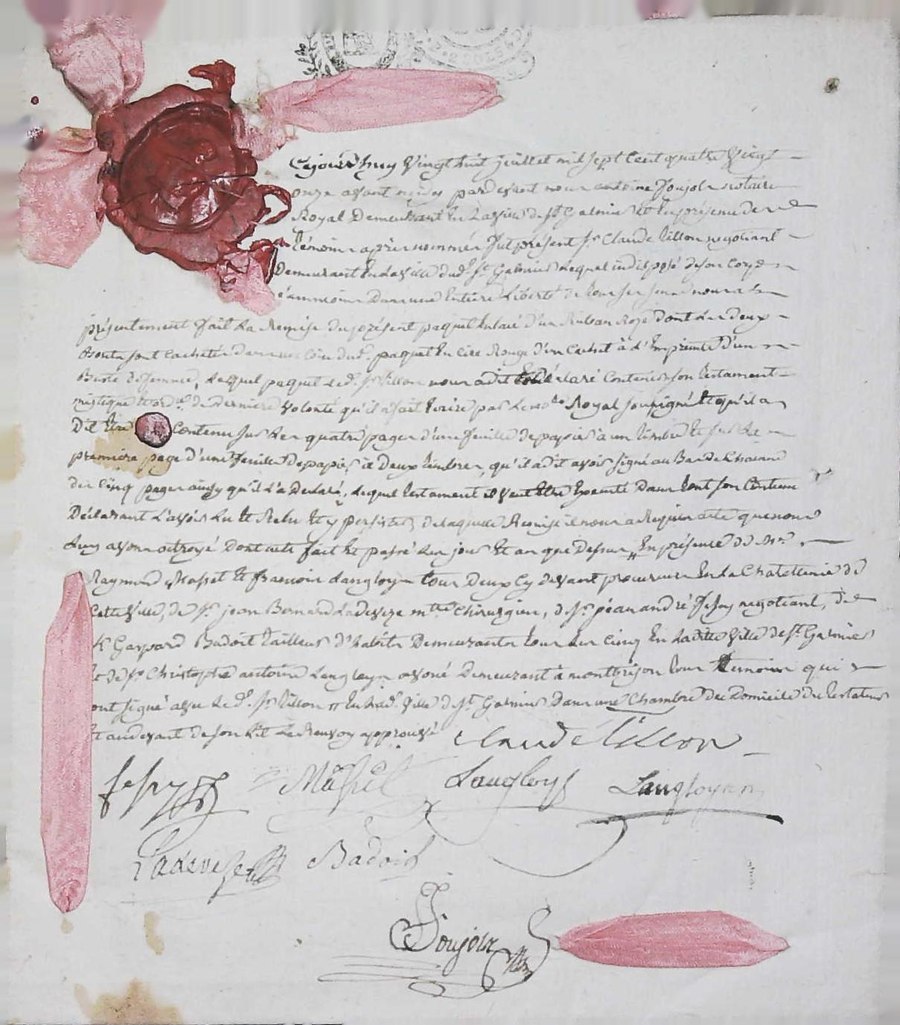 Cejourd'huy vingt huit Juillet mil sept cent quatre vingt
onze avant midy pardevant nous antoine notaire
Royal Demeurant En La ville de St. Galmier Et En présence des
témoins après nommés fut présent Sr. Claude Villon negotiant
Demeurant En La ville dud. St. Galmier Lequel indisposé de son Corps
néanmoins Dans une Entière Liberté de tous ses sens nous a
présentement fait La Remise du présent paquet Enlacé d'un Ruban Roze dont Les deux
bouts sont Cachetés paquet En Cire Rouge d'un Cachet à L'Empreinte d'un
Buste de femme, Lequel paquet Led. Sr. Villon nous a dit déclaré Contenir son testament
mistique de dernière volonté qu'il a fait Ecrire par Le no.re Royal soussigné Et qu'il a
Dit Etre Contenu sur Les quatre pages d'une feuille de papier à un timbre Et sur La
première page d'une feuille de papier à Deux timbres, qu'il a dit avoir signé au Bas de Chacune
des Cinq pages ainsy qu'il L'a Déclaré, Lequel testament il veut Etre Executé Dans tout son Contenu
Déclarant L'avoir Lu Et Relu Et y persister, de Laquelle Remise il nous a Requis acte que nous
Luy avons octroyé Dont acte fait Et passé Les jour Et an que Dessus, En présence de Mrs.
Raymond Masset Et francois Langloys tous Deux Cy devant procureurs En La Chatellenie de
Cette ville, de Sr. jean Bernard Ladeveze mtre Chirurgien, de Sr. jean andré negotiant, de
Sr. Gaspard Badoit Tailleur d'habits Demeurants tous Les Cinq En Ladite ville de St. Galmier
Et de Sr. Christophe antoine Langloys avoué Demeurant à montbrison tous témoins qui
ont signé avec Led. Sr. Villon Et En lad. ville de St. Galmier Dans une Chambre du Domicile du testateur
Et audevant de son Lit Le Renvoy approuvé
Claude Villon
Masset Langloys Langloys
Ladeveze Badoit